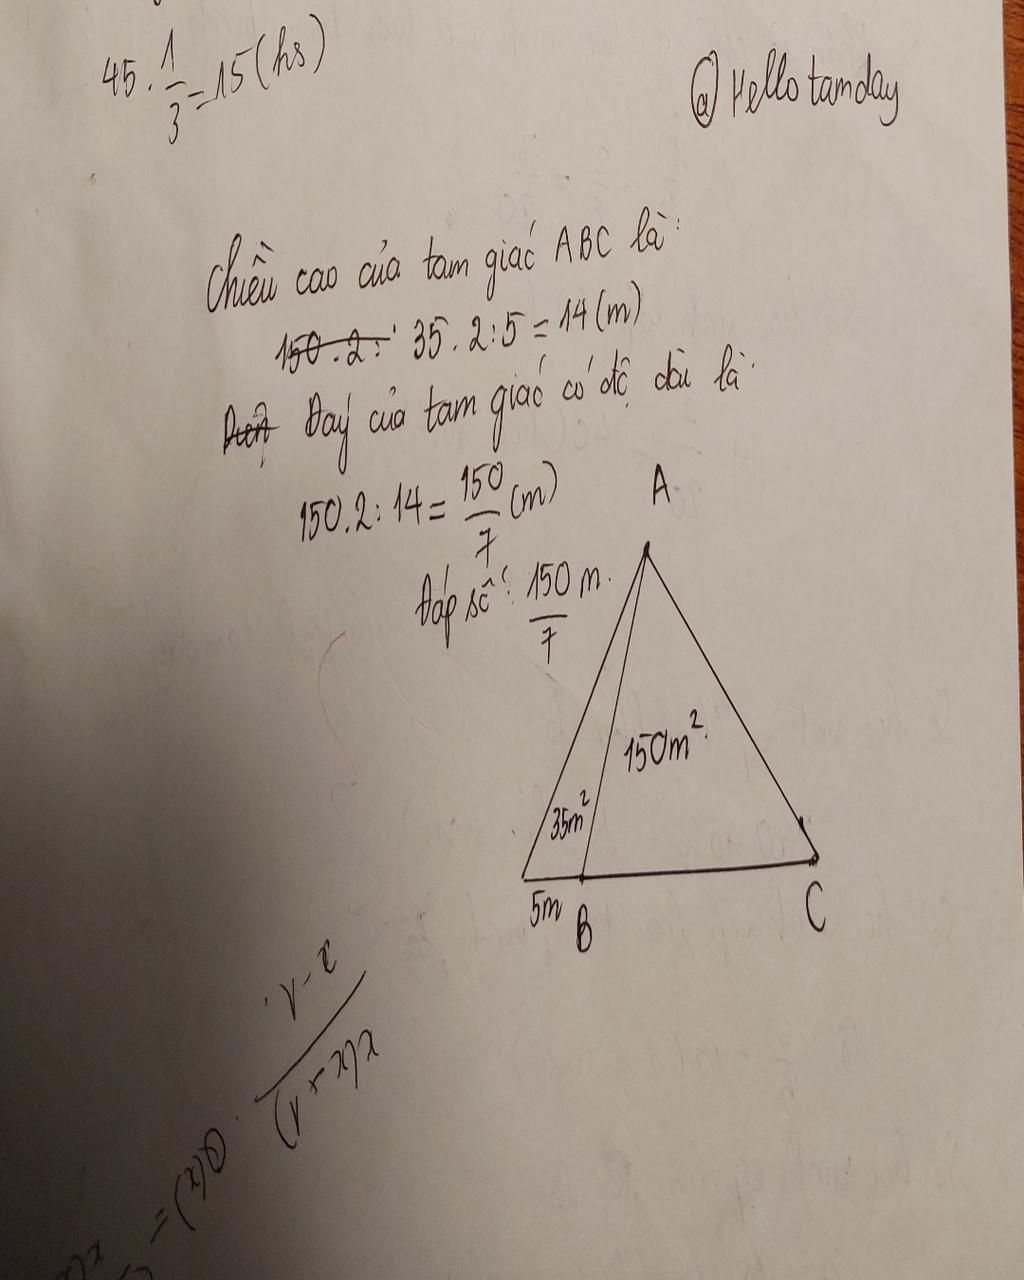 45 . 1/3 = 15 (hs)
@Hellotamday
Chiều cao của tam giác ABC là:
150 . 2 : 35 . 2 : 5 = 14 (m)
Đáy của tam giác có độ dài là:
150 . 2 : 14 = 150/7 (m)
Đáp số : 150/7 m.
A
150m²
35m²
5m B C